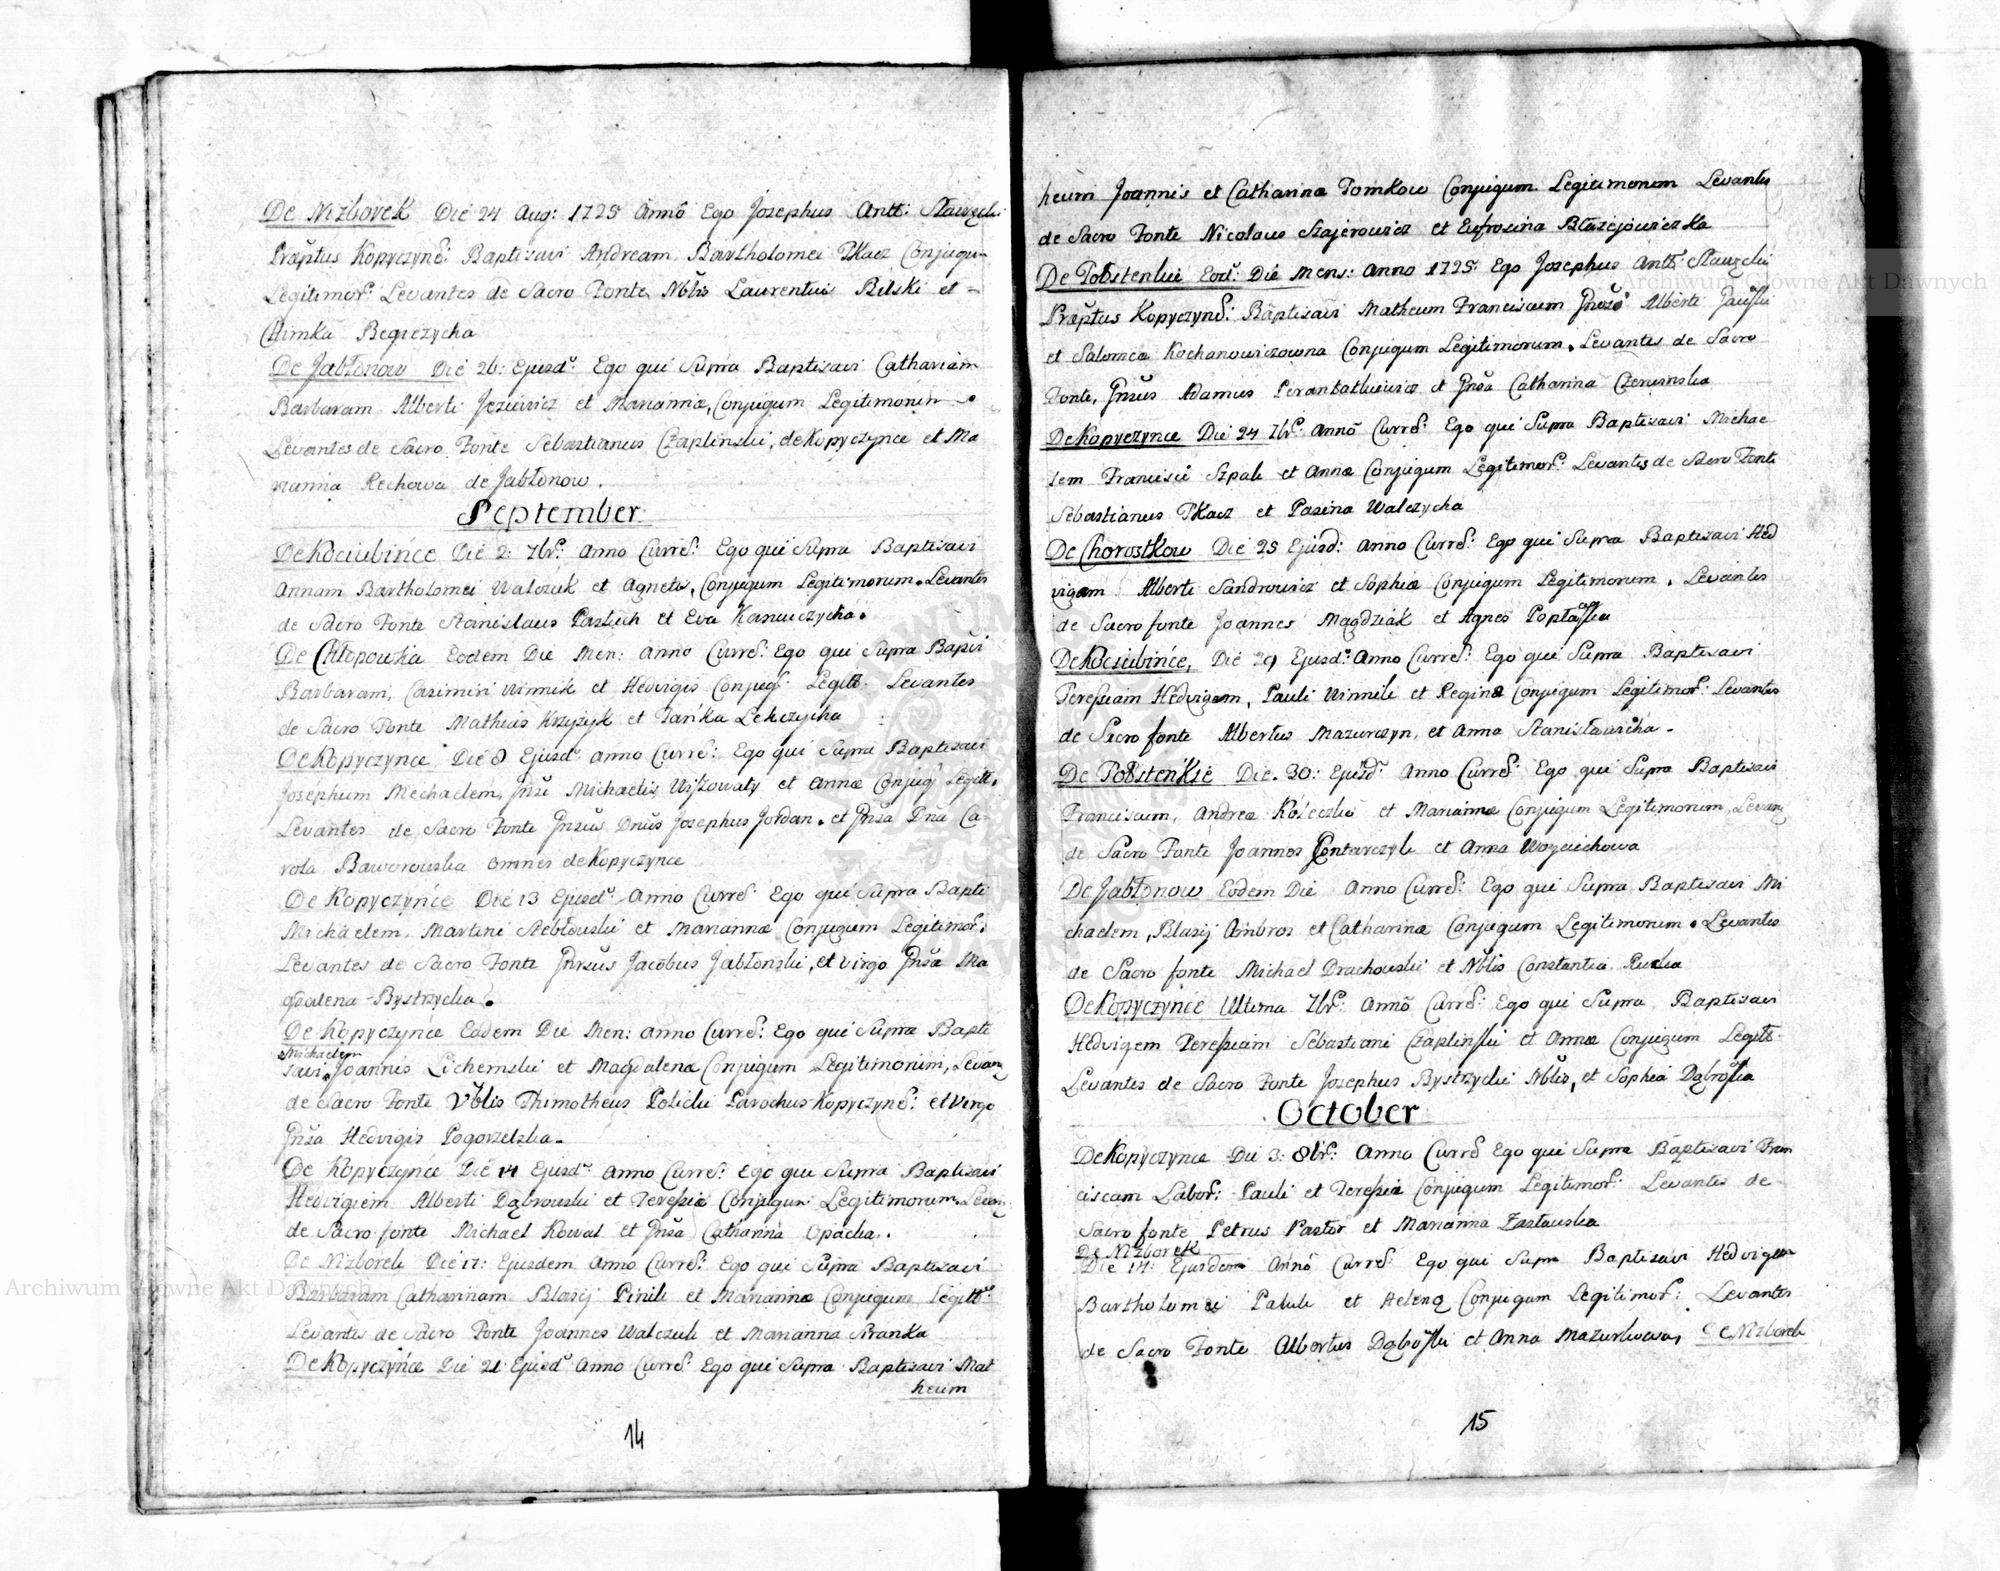 De Nizborek Die 24 Aug: 1725 Anno Ego Josephus Antt:
Præptus Kopyczynć: Baptisavi Andream Bartholomei Tkacz Conjugu-
Legitimor: Levantes de Sacro Fonte Nblis Laurentius Bilski et -
Chimka Begrezycha
De Jabłonow Die 26: Ejusd. Ego qui Supra Baptisavi Catharinam
Barbaram Alberti Jeziewicz et Mariannæ, Conjugum Legitimorum
Levantes de Sacro Fonte Sebastianus Czaplinski, de Kopyczynce et Ma
rianna Rechowa de Jabłonow.
September
De Kociubińce Die 2: 7br: Anno Curre: Ego qui Supra Baptisavi
Annam Bartholomei Walczuk et Agnetis, Conjugum Legitimorum. Levantes
de Sacro Fonte Stanislaus Pastuch et Eva Kanuiczycha.
De Chłopowka Eodem Die Men: Anno Curre: Ego qui Supra Bapsvi
Barbaram, Casimiri Winnik et Hedvigis Conjug: Legitt: Levantes
de Sacro Fonte Mathias Krzyżyk et Pańka Lekczycha
De Kopyczynce Die 8 Ejusd. Anno Curre: Ego qui Supra Baptisavi
Josephum Mechaelem, Michaelis et Annæ Conjug: Legitt.
Levantes de Sacro Fonte Gnsus Dnus Josephus Jordan. et Gnsa Dna Ca-
rola Baworowska omnes de Kopyczynce
De Kopyczyńce Die 13 Ejusd. Anno Curre: Ego qui Supra Bapti
Michaelem, Martini et Mariannæ Conjugum Legitimor:
Levantes de Sacro Fonte Gnrsus Jacobus Jabłonski, et virgo Gnsa Ma
gdalena Bystrzycka.
De Kopyczyńce Eodem Die Men: Anno Curre: Ego qui Supra Bapti
Michaelem
savi Joannis Lichemski et Magdalenæ Conjugum Legitimorum, Levan
de Sacro Fonte Vblis Thimotheus Parochus Kopyczyn: et virgo
Gnsa Hedvigis Pogorzelska.
De Kopyczyńce Die 14 Ejusd. Anno Curre: Ego qui Supra Baptisavi
Hedvigiem Alberti Dąbrowski et Teresiæ Conjugum Legitimorum. Levan
de Sacro fonte Michael Kowal et Gnsa Catharina Opacka.
De Nizborek Die 17: Ejusdem Anno Curre: Ego qui Supra Baptisavi
Barbaram Catharinam Blasij Pinik et Mariannæ Conjugum Legitt:
Levantes de Sacro Fonte Joannes Walczuk et Marianna
De Kopyczyńce Die 21 Ejusd. Anno Curre: Ego qui Supra Baptisavi Mat
heum
14
heum Joannis et Catharinæ Tomkow Conjugum Legitimorum Levantes
de Sacro Fonte Nicolaus Szajerowicz et Eufrosina Błażejowiczka
De Tobstenkie Eod: Die Mens: Anno 1725: Ego Josephus Antt:
Præptus Kopyczynć: Baptisavi Matheum Franciscum Alberti
et Salomea Kochanowiczowna Conjugum Legitimorum. Levantes de Sacro
Fonte, Gnsus Adamus et Gnsa Catharina
De Kopyczynce Die 24 7br: Anno Curre: Ego qui Supra Baptisavi Michae
lem Francisci Szpak et Annæ Conjugum Legitimor: Levantes de Sacro Fonte
Sebastianus Tkacz et Walczycha
De Chorostkow Die 25 Ejusd: Anno Curre: Ego qui Supra Baptisavi Hed
vigam Alberti Sandrowicz et Sophiæ Conjugum Legitimorum. Levantes
de Sacro fonte Joannes Magdziak et Agnes
De Kociubińce, Die 29 Ejusd. Anno Curre: Ego qui Supra Baptisavi
Teresiam Hedvigam, Pauli Winnik et Reginæ Conjugum Legitimor: Levantes
de Sacro fonte Albertus Mazurczyn, et Anna Stanisławicha.
De Tobsteńkie Die. 30: Ejusd. Anno Curre: Ego qui Supra Baptisavi
Franciscum, Andreæ et Mariannæ Conjugum Legitimorum, Levan
de Sacro Fonte Joannes et Anna Woyciechowa
De Jabłonow Eodem Die Anno Curre: Ego qui Supra Baptisavi Mi
chaelem, Blasij Ambros et Catharinæ Conjugum Legitimorum. Levantes
de Sacro fonte Michael Drachowski et Nblis Constantia
De Kopyczyńce Ultima 7br: Anno Curre: Ego qui Supra Baptisavi
Hedvigem Teresiam Sebastiani Czaplinski et Annæ Conjugum Legitt:
Levantes de Sacro Fonte Josephus Bystrzycki Nblis, et Sophia
October
De Kopyczynce Die 3: 8br: Anno Curre Ego qui Supra Baptisavi Fran
ciscam Labor: Pauli et Teresiæ Conjugum Legitimor: Levantes de-
Sacro fonte Petrus Pastor et Marianna Zasławska
De Nizborek
Die 14: Ejusdem Anno Curre: Ego qui Supra Baptisavi Hedvigem
Bartholomæi et Helenæ Conjugum Legitimor: Levantes
de Sacro Fonte Albertus et Anna Mazurkowa, De Nizborek
15
Archiwum Główne Akt Dawnych
Archiwum Główne Akt Dawnych